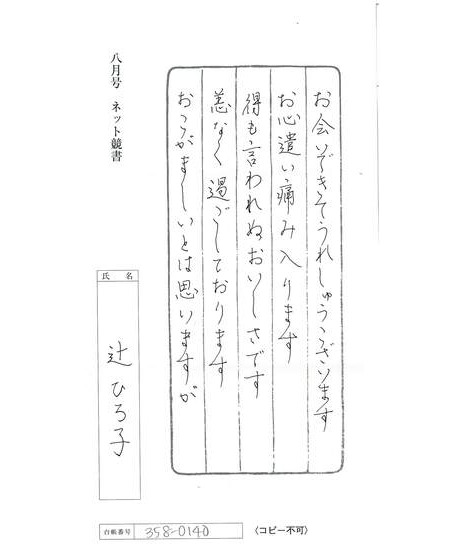 お会いできてうれしゅうございます
お心遣い痛み入ります
得も言われぬおいしさです
恙なく過ごしております
おこがましいとは思いますが
八月号 ネット競書
氏名
辻ひろ子
台帳番号 358-0140
〈コピー不可〉